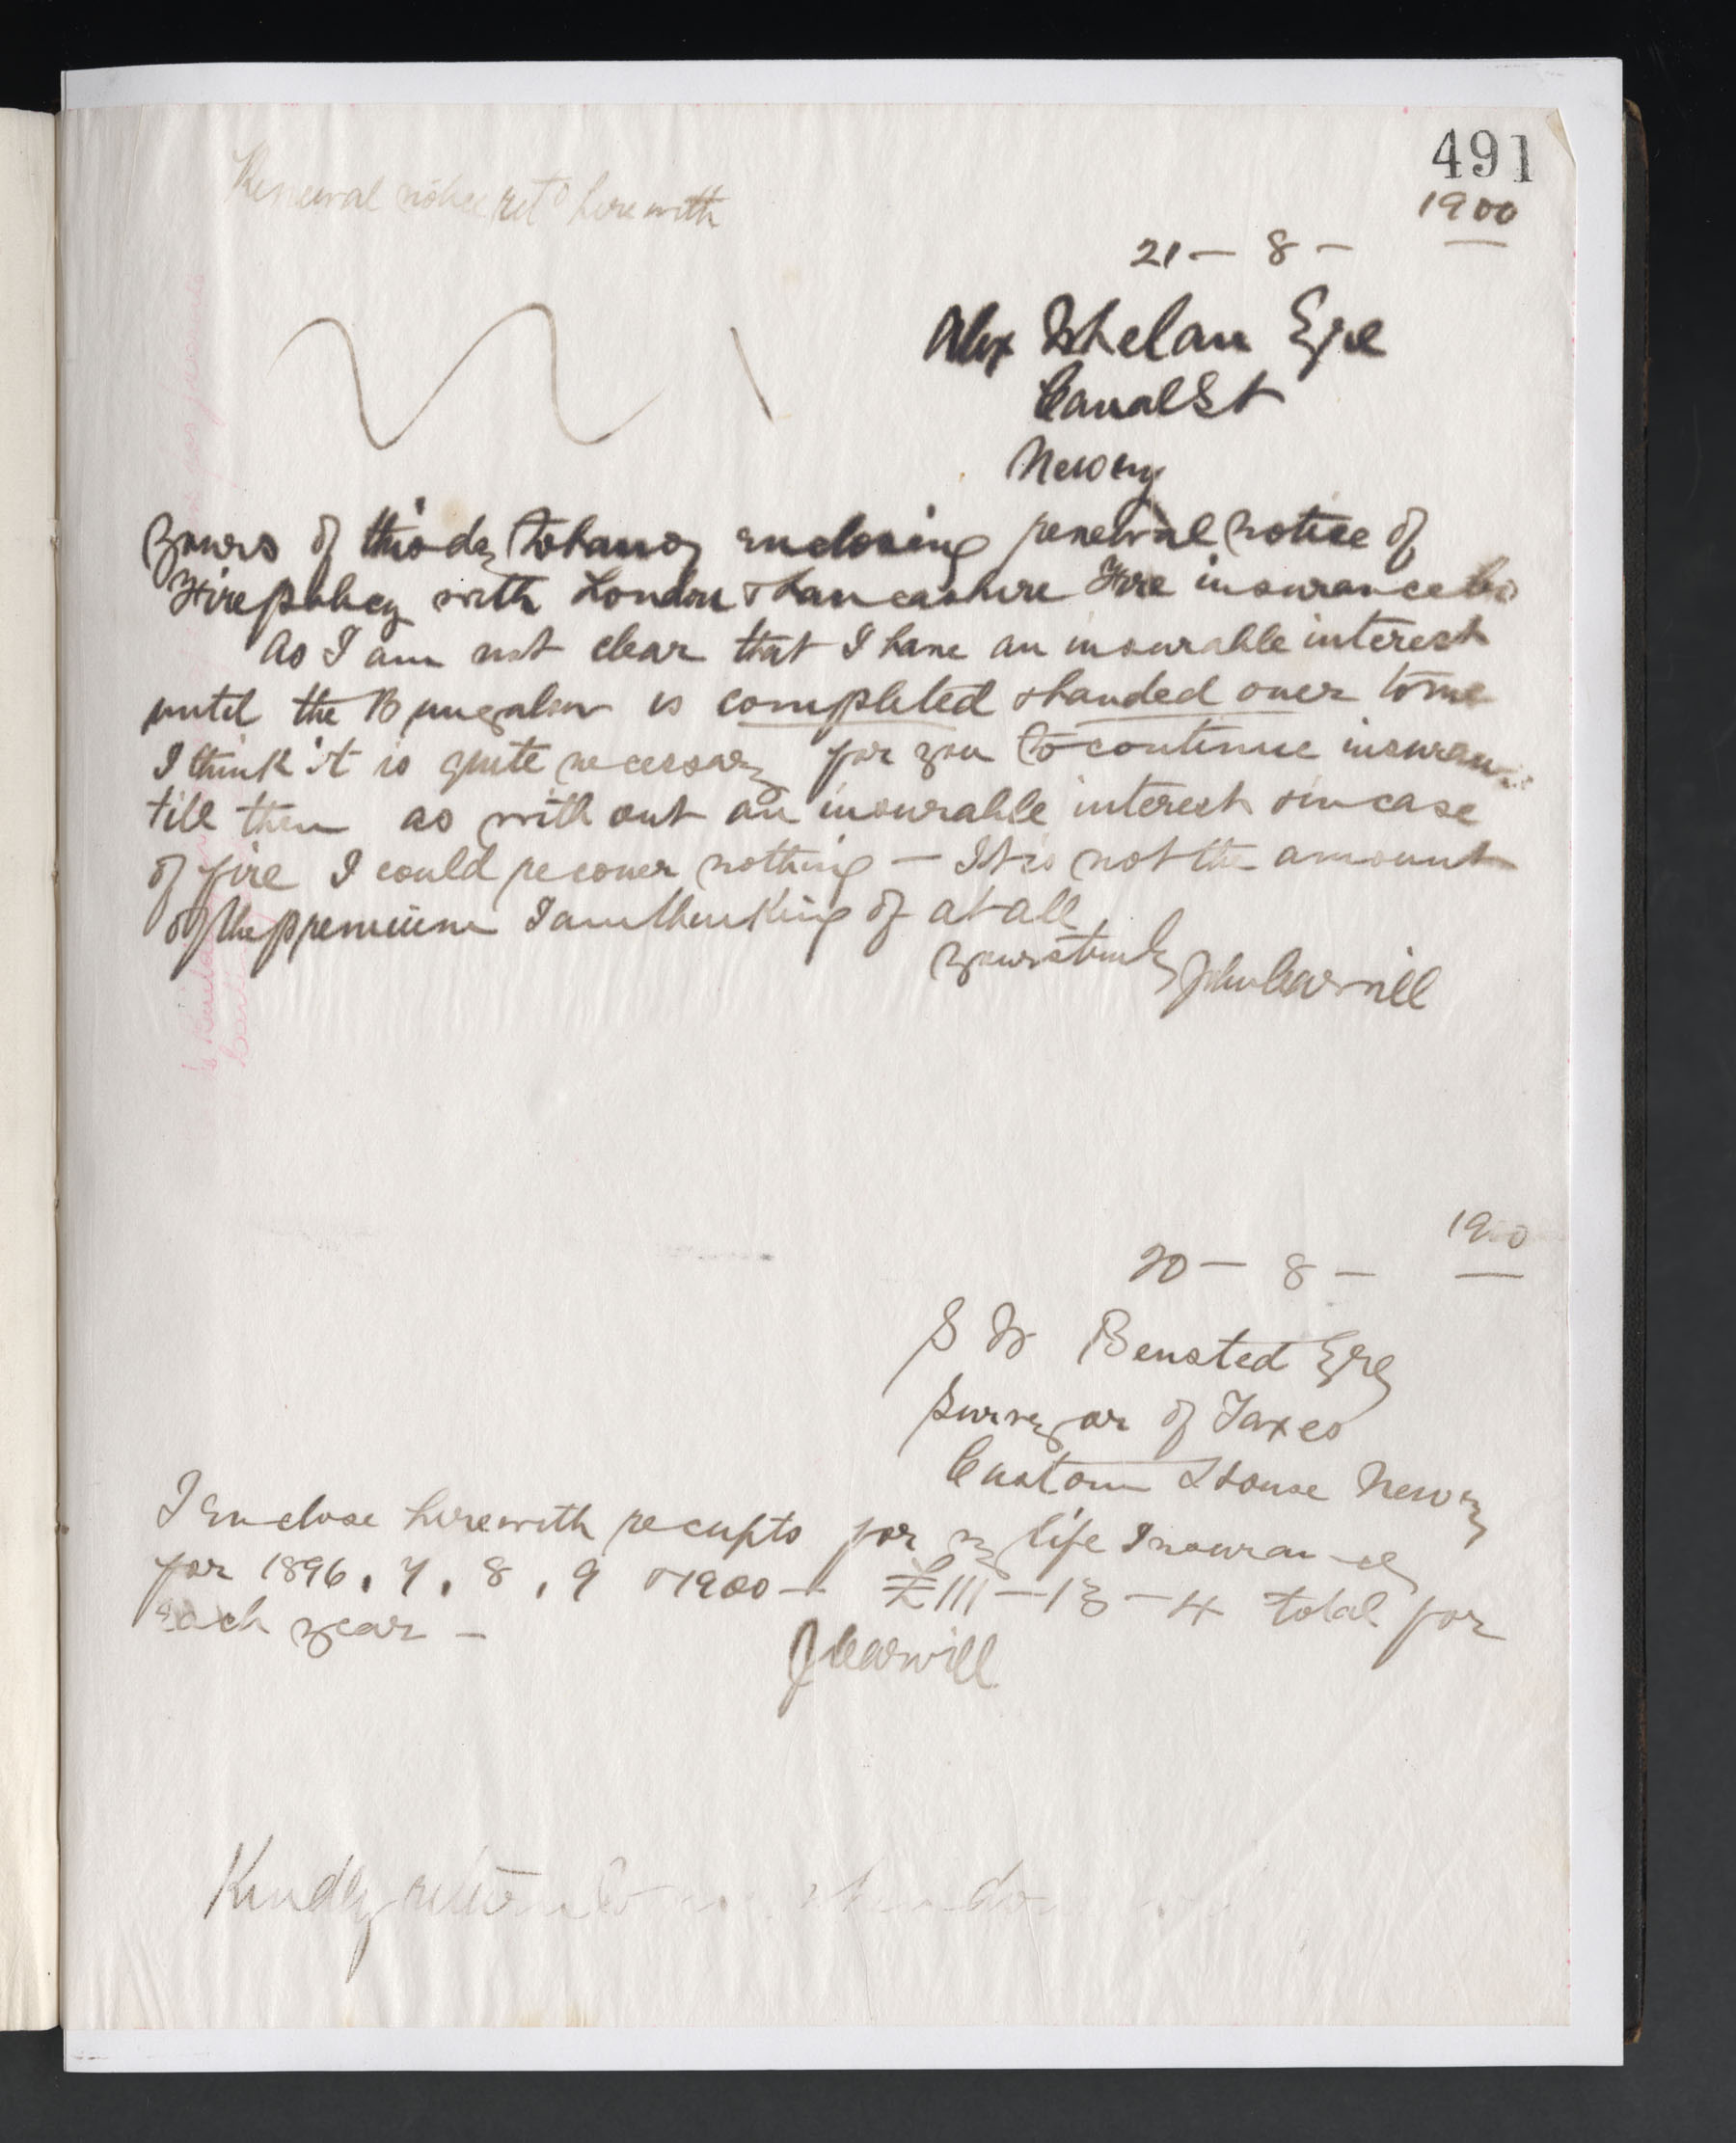 491
Renewal notice retd herewith
1900
21 - 8 -
Alex Whelan Esqre
Canal St
Newry
Yours of this day to hand enclosing renewal notice of
Fire policy with London & Lancashire Fire insurance Co
As I am not clear that I have an insurable interest
until the Bungalow is completed & handed over to me
I think it is quite necessary for you to continue insurance
till then as without an insurable interest & in case
of fire I could recover nothing - It is not the amount
of the premium I am thinking of at all
Yours truly John Carvill
1900
20 - 8 -
S W Bensted Esq
Surveyor of Taxes
Custom House Newry
I Enclose herewith receipts for my life Insurance
for 1896, 7, 8, 9 & 1900 - £111 - 13 - 4 total for
each year -
J Carvill
Kindly return